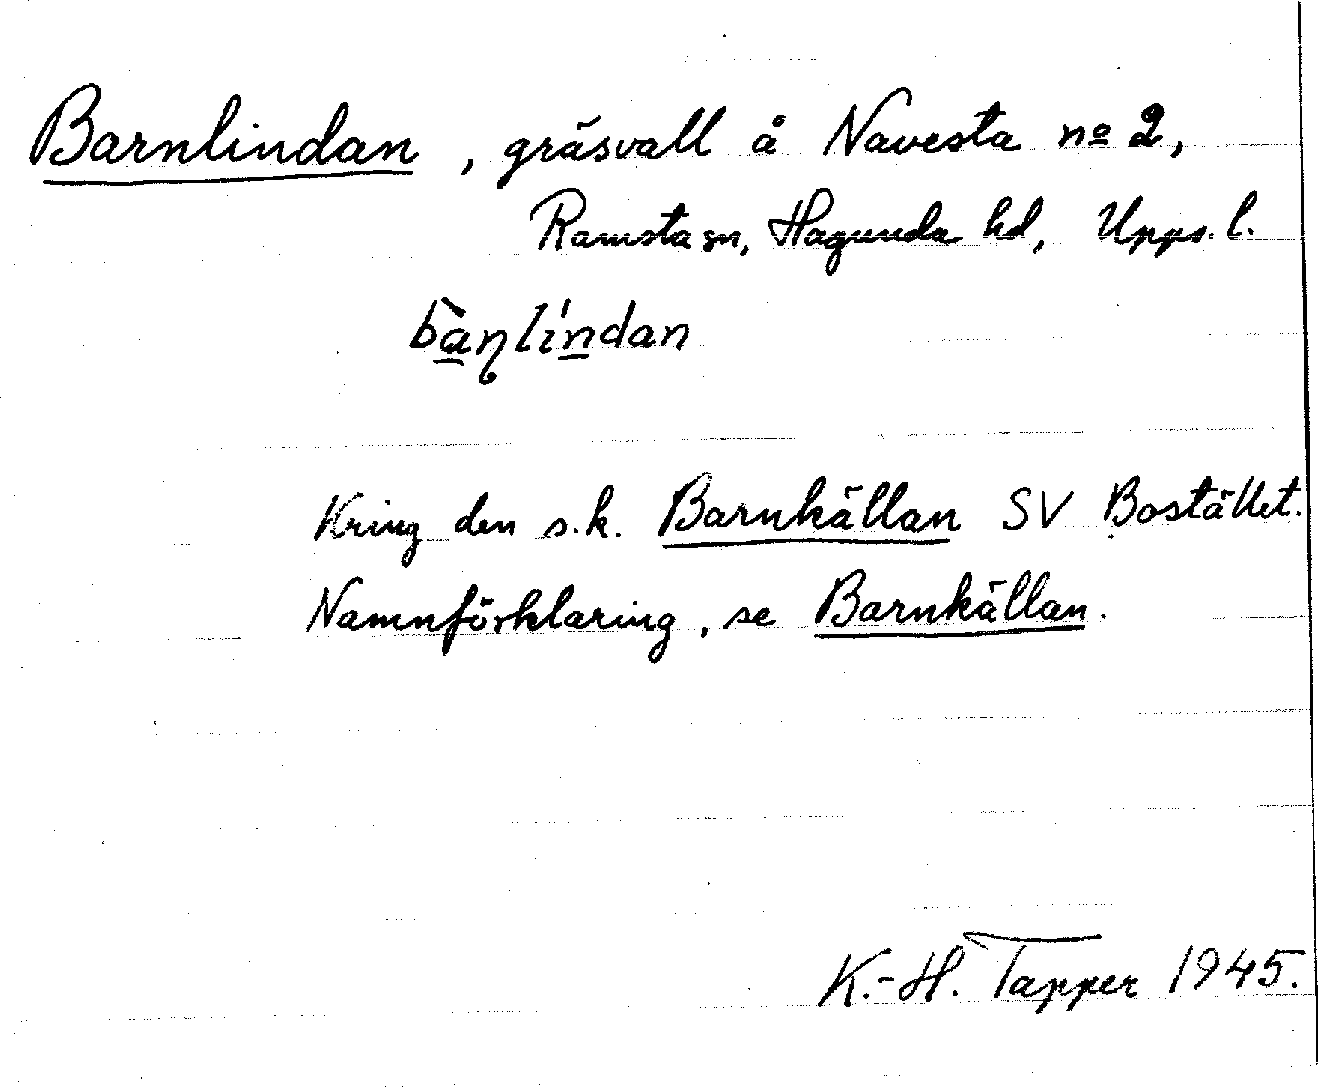 Barnlindan, gräsvall å Navesta nº 2,
Ramsta sn, Hagunda hd, Upps. l.
bàɳlíndan
Kring den s.k. Barnkällan SV Bostället.
Namnförklaring, se Barnkällan.
K.-H. Tapper 1945.